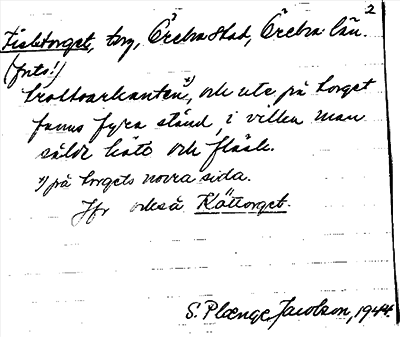 2
Fisktorget, torg, Örebro stad, Örebro län.
(forts!)
trottoarkanten x), och ute på torget
funns fyra stånd, i vilka man
sålde kött och fläsk.
x) på torgets norra sida.
Jfr också Köttorget.
S. Plænge Jacobson, 1944.